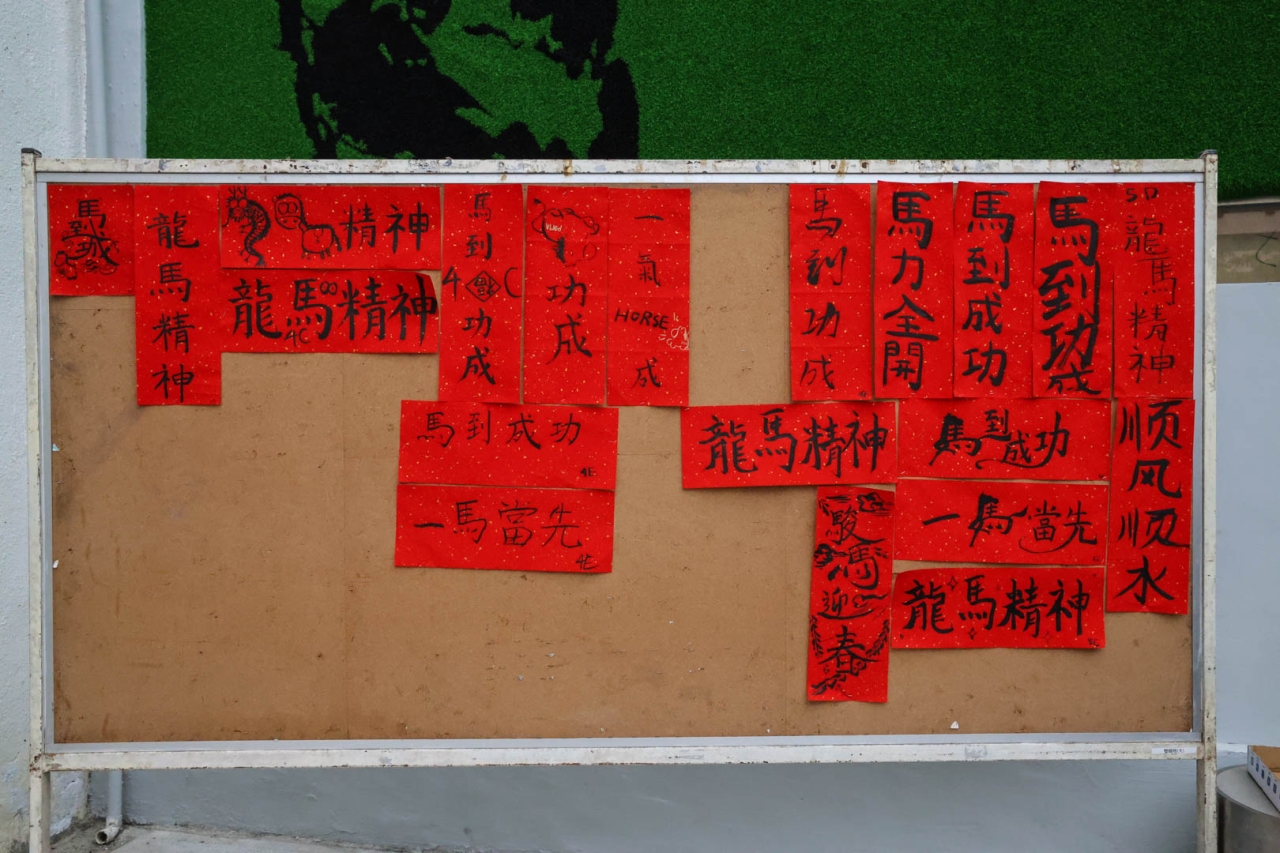 馬到成
龍馬精神
精神
龍馬精神
4C
馬到
4 C
功成
功成
一氣
HORSE
成
馬到功成
馬力全開
馬到成功
馬到功成
5D
龍馬精神
馬到成功
4E
一馬當先
4E
龍馬精神
馬到成功
顺风顺水
一馬當先
駿馬迎春
龍馬精神